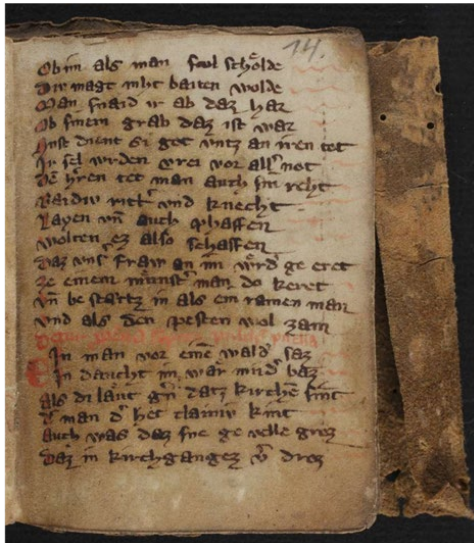 14.
Ob im als man sol schölde
Dev magt niht baiten wolde
Man snaid ir ab daz har
Ob sinem grab daz ist war
Sust dient si got vntz an iren tot
Ir sel wrden vrei vor all' not
De h'ren tet man auch sin reht
Baidiv ritt' vnd knecht
Layen vn auch phaffen
Wolten ez also schaffen
Daz vns' fraw an im wrd ge eret
Ze einem münst' man do keret
Vn be startz in als ein ramen man
Vnd als den pesten wol zam
Ein man vor eine wald saz
In daucht im wär mind' baz
Als di läut gen datz kirchen sint
D' man d' het clainiv kint
Auch was daz sne ge velle groz
Daz in kirchgangez v' droz